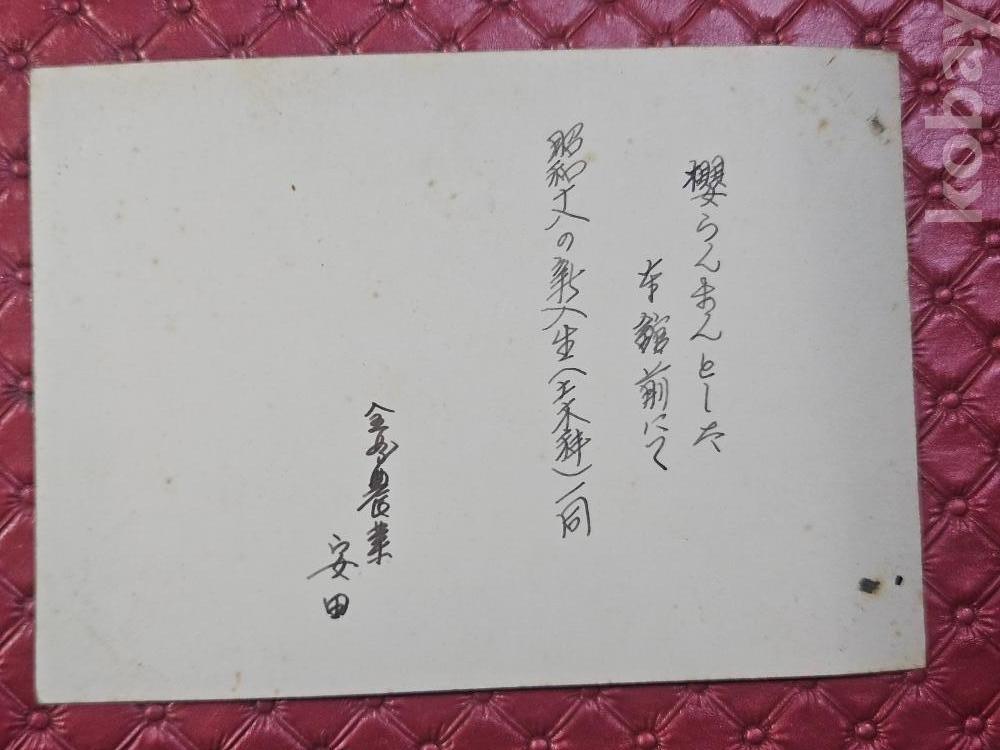 櫻らんまんとした
本館前にて
昭和十八の新入生(土木科)一同
全州農業
安田
kobay